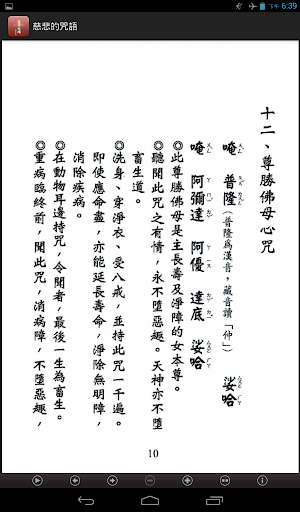 下午 6:39
慈悲的咒語
十二、尊勝佛母心咒
唵 普隆(普隆為漢音，藏音讀「仲」) 娑哈
唵 阿彌達 阿優 達底 娑哈
◎此尊勝佛母是主長壽及淨障的女本尊。
◎聽聞此咒之有情，永不墮惡趣。天神亦不墮
畜生道。
◎洗身、穿淨衣、受八戒，並持此咒一千遍。
即使應命盡，亦能延長壽命，淨除無明障，
消除疾病。
◎在動物耳邊持咒，令聞者，最後一生為畜生。
◎重病臨終前，聞此咒，消病障，不墮惡趣，
10